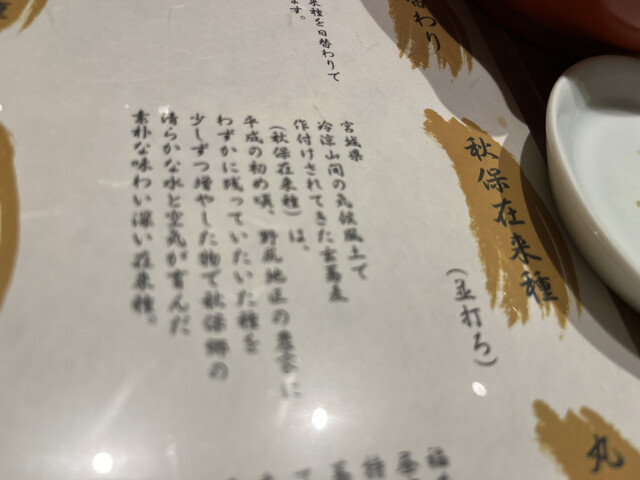 味わり
来種を日替わりで
ます。
秋保在来種
(並打ち)
宮城県
冷涼山間の気候風土で
作付けされてきた玄蕎麦
(秋保在来種)は、
平成の初め頃、野尻地区の農家に
わずかに残っていたいた種を
少しずつ増やした物で秋保郷の
清らかな水と空気が育んだ
素朴な味わい深い在来種。
丸